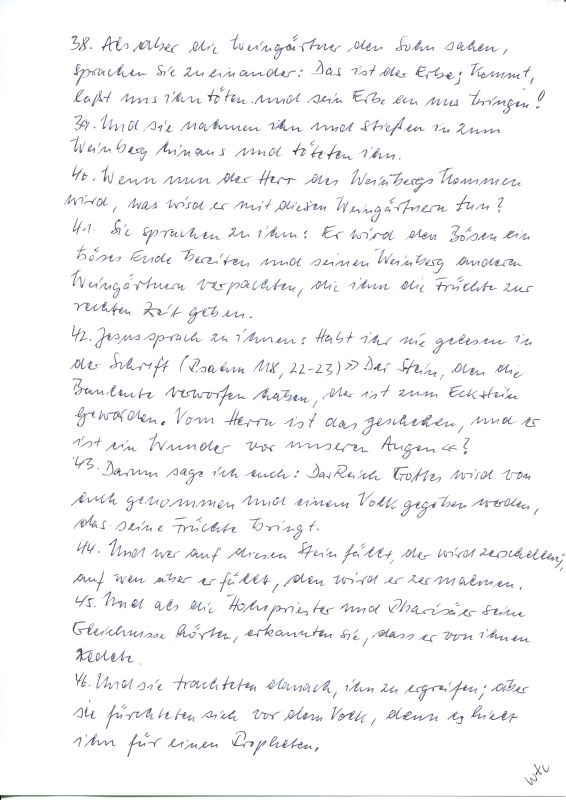 38. Als aber die Weingärtner den Sohn sahen,
sprachen sie zueinander: Das ist der Erbe; kommt,
laßt uns ihn töten und sein Erbe an uns bringen!
39. Und sie nahmen ihn und stießen in zum
Weinberg hinaus und töteten ihn.
40. Wenn nun der Herr des Weinbergs kommen
wird, was wird er mit diesen Weingärtnern tun?
41. Sie sprachen zu ihm: Er wird den Bösen ein
böses Ende bereiten und seinen Weinberg anderen
Weingärtnern verpachten, die ihm die Früchte zur
rechten Zeit geben.
42. Jesus sprach zu ihnen: Habt ihr nie gelesen in
der Schrift (Psalm 118, 22-23) »Der Stein, den die
Bauleute verworfen haben, der ist zum Eckstein
geworden. Vom Herrn ist das geschehen, und er
ist ein Wunder vor unseren Augen«?
43. Darum sage ich euch: Das Reich Gottes wird von
euch genommen und einem Volk gegeben werden,
das seine Früchte bringt.
44. Und wer auf diesen Stein fällt, der wird zerschellen;
auf wen aber er fällt, den wird er zermalmen.
45. Und als die Hohepriester und Pharisäer seine
Gleichnisse hörten, erkannten sie, dass er von ihnen
redete.
46. Und sie trachteten danach, ihn zu ergreifen; aber
sie fürchteten sich vor dem Volk, denn es hielt
ihn für einen Propheten.